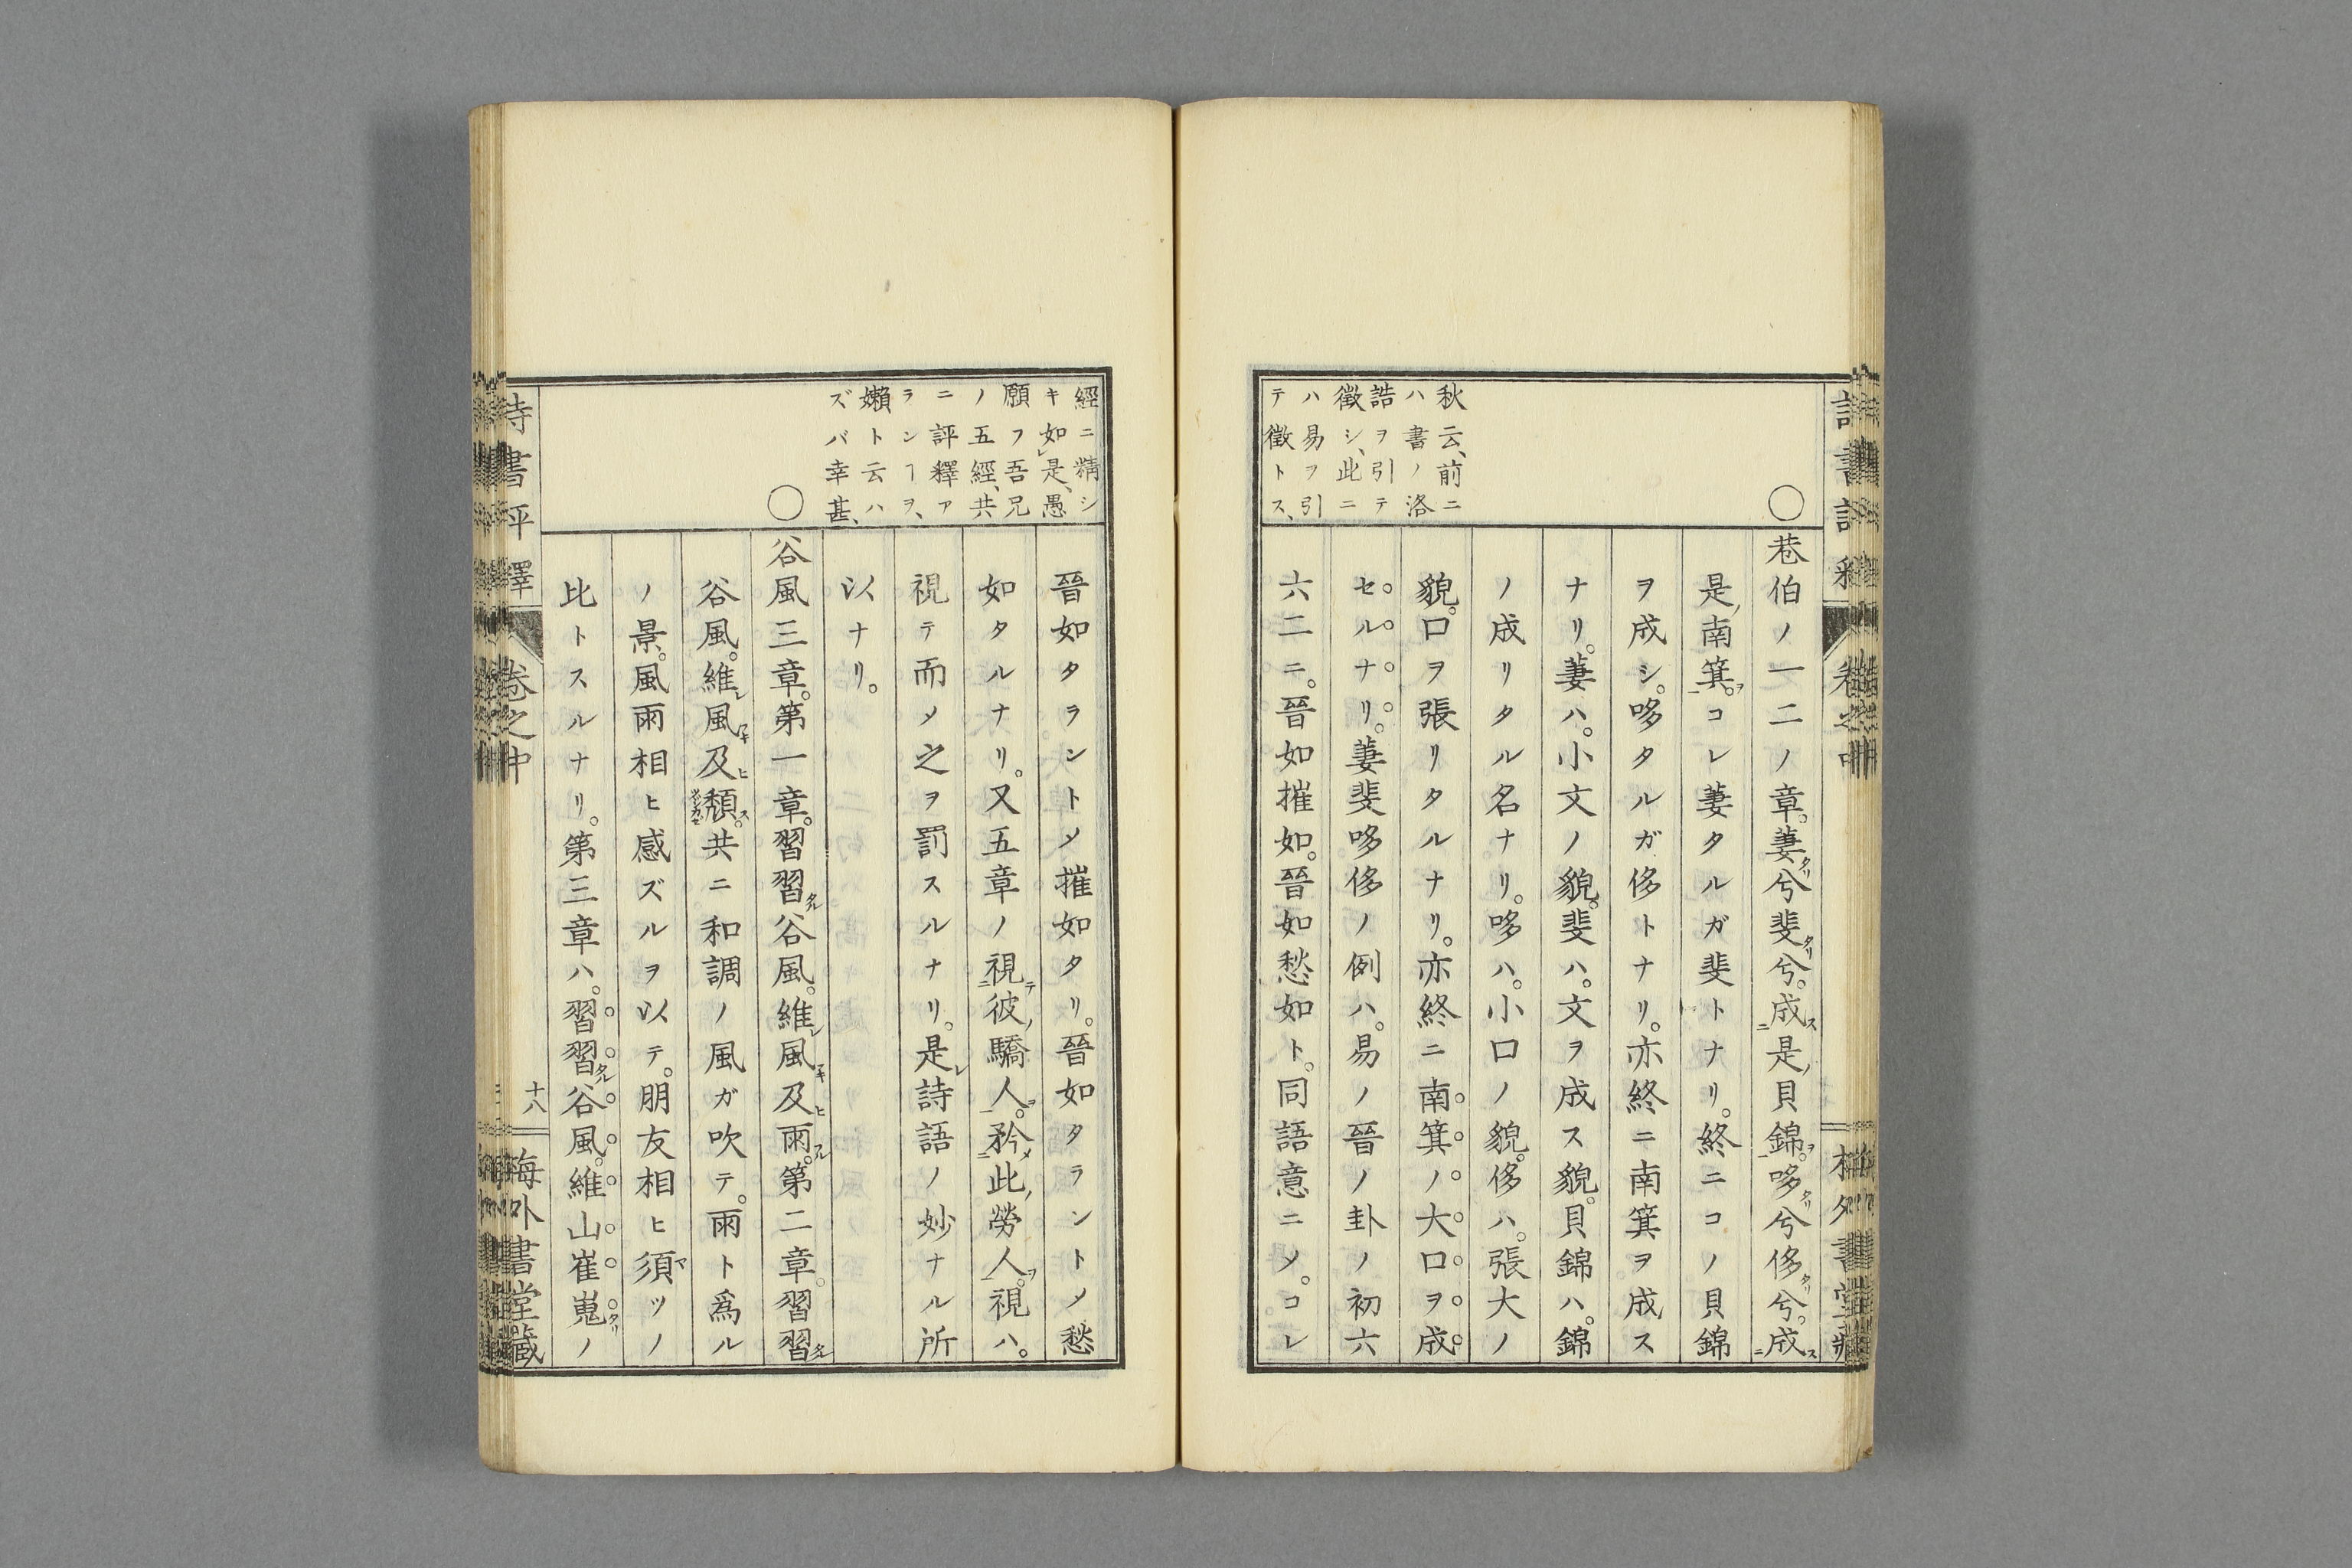 秋云、前ニ
ハ書ノ洛
誥ヲ引テ
徵シ、此ニ
ハ易ヲ引
テ徵トス、
○
巷伯ノ一二ノ章。萋兮斐兮。成是貝錦。哆兮侈兮。成
是南箕。コレ萋タルガ斐トナリ。終ニコノ貝錦
ヲ成シ。哆タルガ侈トナリ。亦終ニ南箕ヲ成ス
ナリ。萋ハ。小文ノ貌。斐ハ。文ヲ成ス貌。貝錦ハ。錦
ノ成リタル名ナリ。哆ハ。小口ノ貌。侈ハ。張大ノ
貌。口ヲ張リタルナリ。亦終ニ南箕ノ大口ヲ成
セルナリ。萋斐哆侈ノ例ハ。易ノ晉ノ卦ノ初六
六二ニ。晉如摧如。晉如愁如ト。同語意ニメ。コレ
經ニ精シ
キ如是、愚
願フ吾兄
ノ五經、共
ニ評釋ア
ランヿヲ、
嬾ト云ハ
ズバ幸甚、
○
晉如タラントメ摧如タリ。晉如タラントメ愁
如タルナリ。又五章ノ視彼驕人。矜此勞人。視ハ。
視テ而メ之ヲ罰スルナリ。是詩語ノ妙ナル所
以ナリ。
谷風三章。第一章。習習谷風。維風及雨。第二章。習習
谷風。維風及頽。共ニ和調ノ風ガ吹テ。雨ト爲ル
ノ景。風雨相ヒ感ズルヲ以テ。朋友相ヒ須ツノ
比トスルナリ。第三章ハ。習習谷風。維山崔嵬ノ
詩書評釋
卷之中
十八
梅外書堂藏